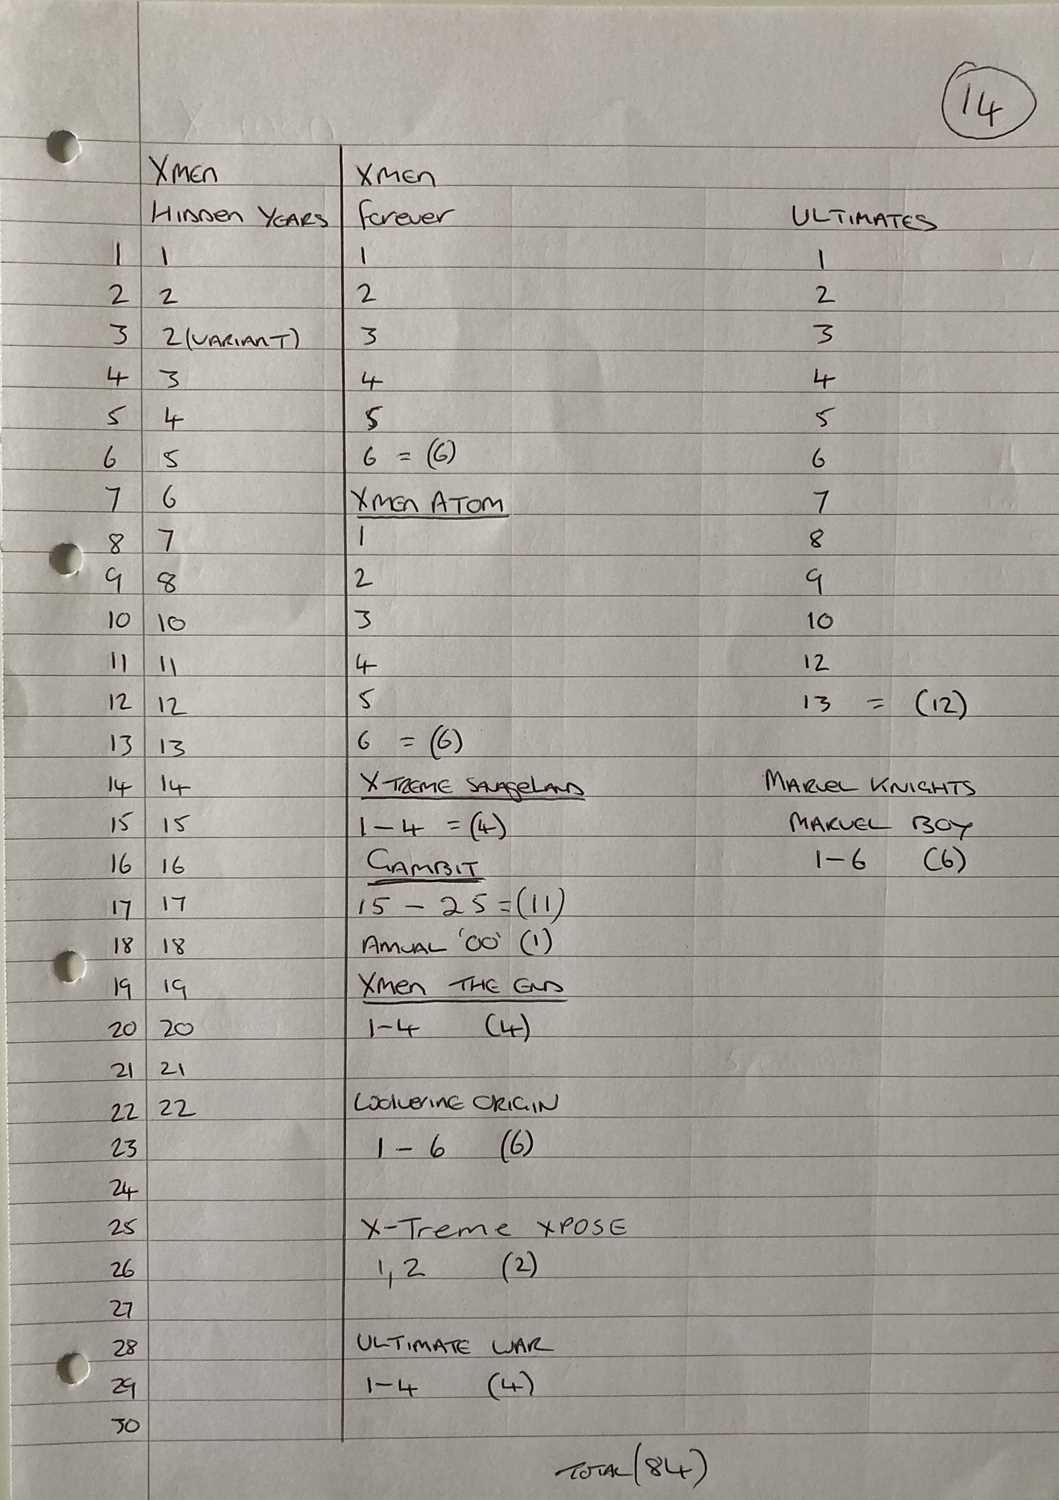 14
XMEN XMEN
HIDDEN YEARS forever ULTIMATES
1 1 1 1
2 2 2 2
3 2(VARIANT) 3 3
4 3 4 4
5 4 5 5
6 5 6 = (6) 6
7 6 XMEN ATOM 7
8 7 1 8
9 8 2 9
10 10 3 10
11 11 4 12
12 12 5 13 = (12)
13 13 6 = (6)
14 14 X TREME SAVAGELAND MARVEL KNIGHTS
15 15 1-4 = (4) MARVEL BOY
16 16 GAMBIT 1-6 (6)
17 17 15 - 25 = (11)
18 18 ANNUAL '00' (1)
19 19 XMEN THE END
20 20 1-4 (4)
21 21
22 22 WOLVERINE ORIGIN
23 1 - 6 (6)
24
25 X-Treme XPOSE
26 1, 2 (2)
27
28 ULTIMATE WAR
29 1-4 (4)
30
TOTAL (84)